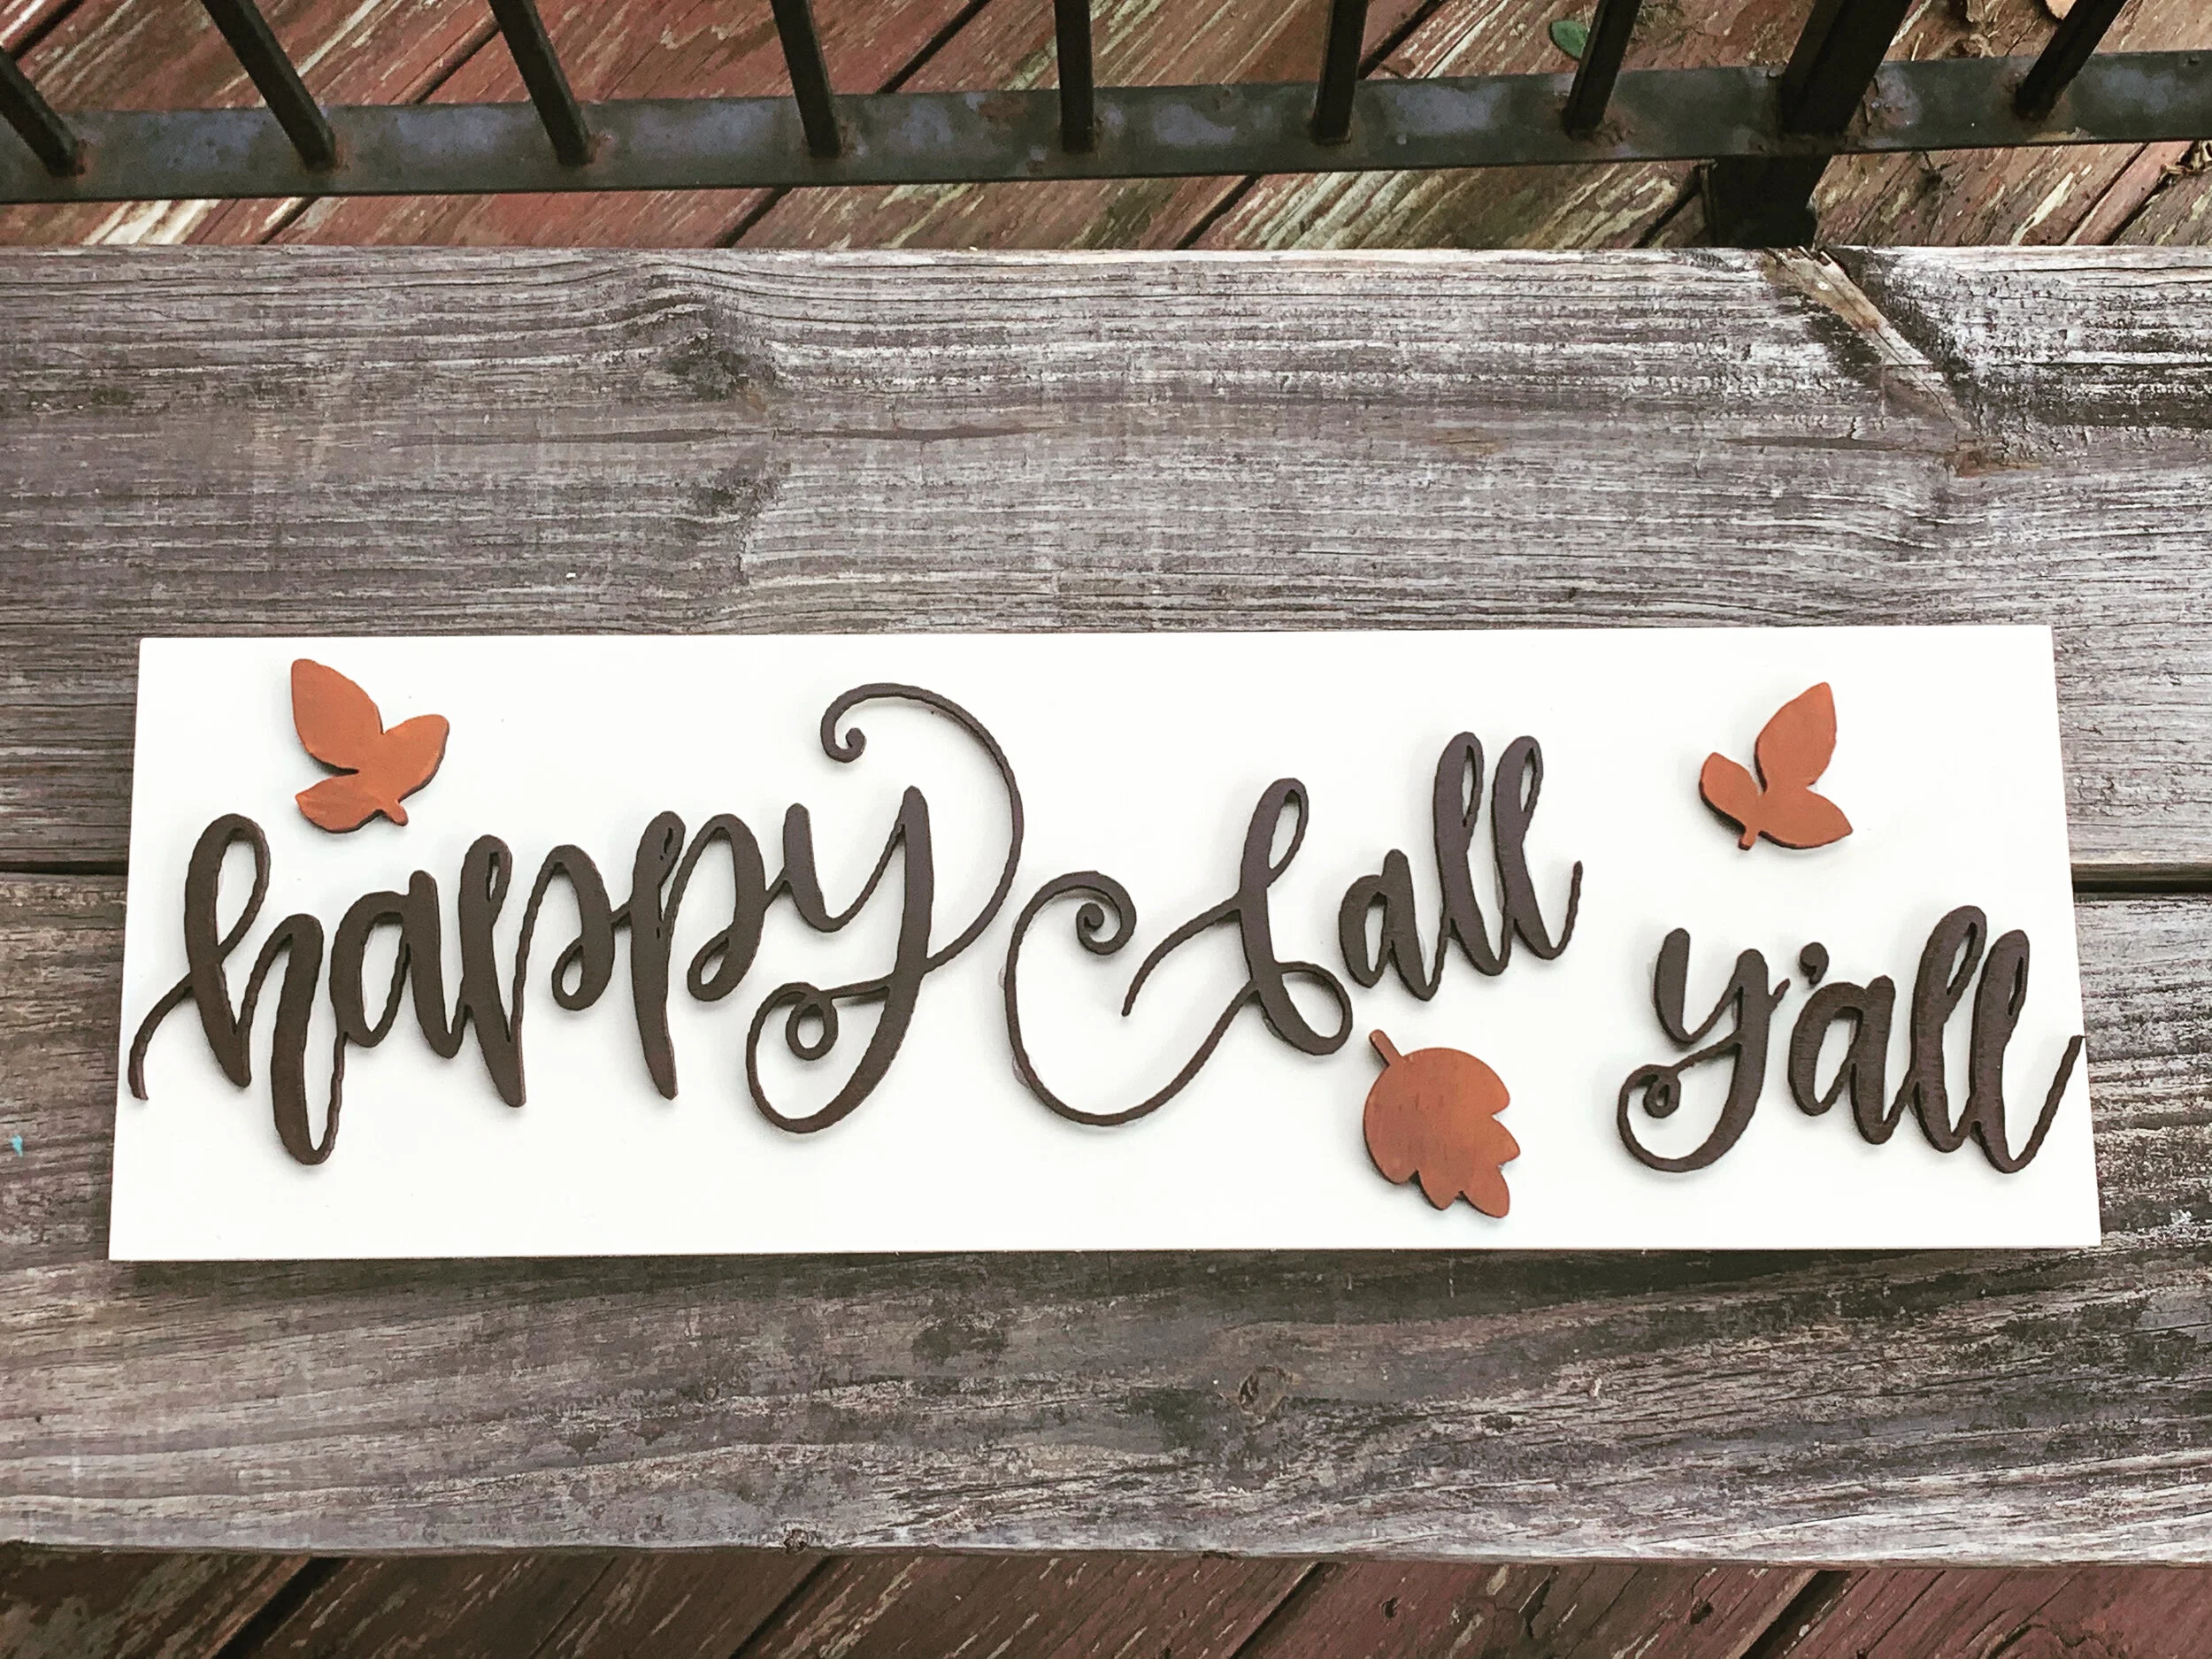 happy fall y'all